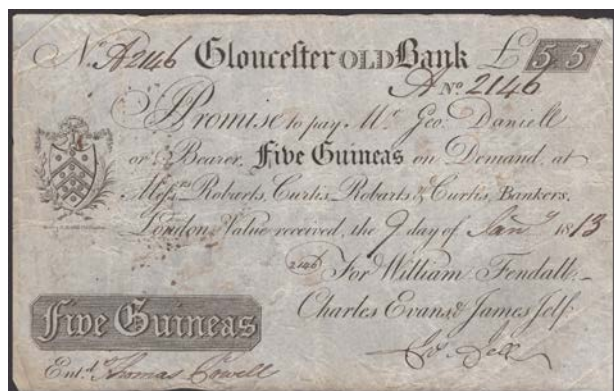 No. A2146 Gloucester OLD Bank £ 5 5
A No. 2146
I Promise to pay Mr. Geo. Daniell
or Bearer, Five Guineas on Demand, at
Messrs. Robarts, Curtis, Robarts & Curtis, Bankers,
London, Value received, the 9 day of Jany. 1813
2146 For William Fendall,
Charles Evans & James Jelf.
Jas. Jelf
Five Guineas
Entd. Thomas